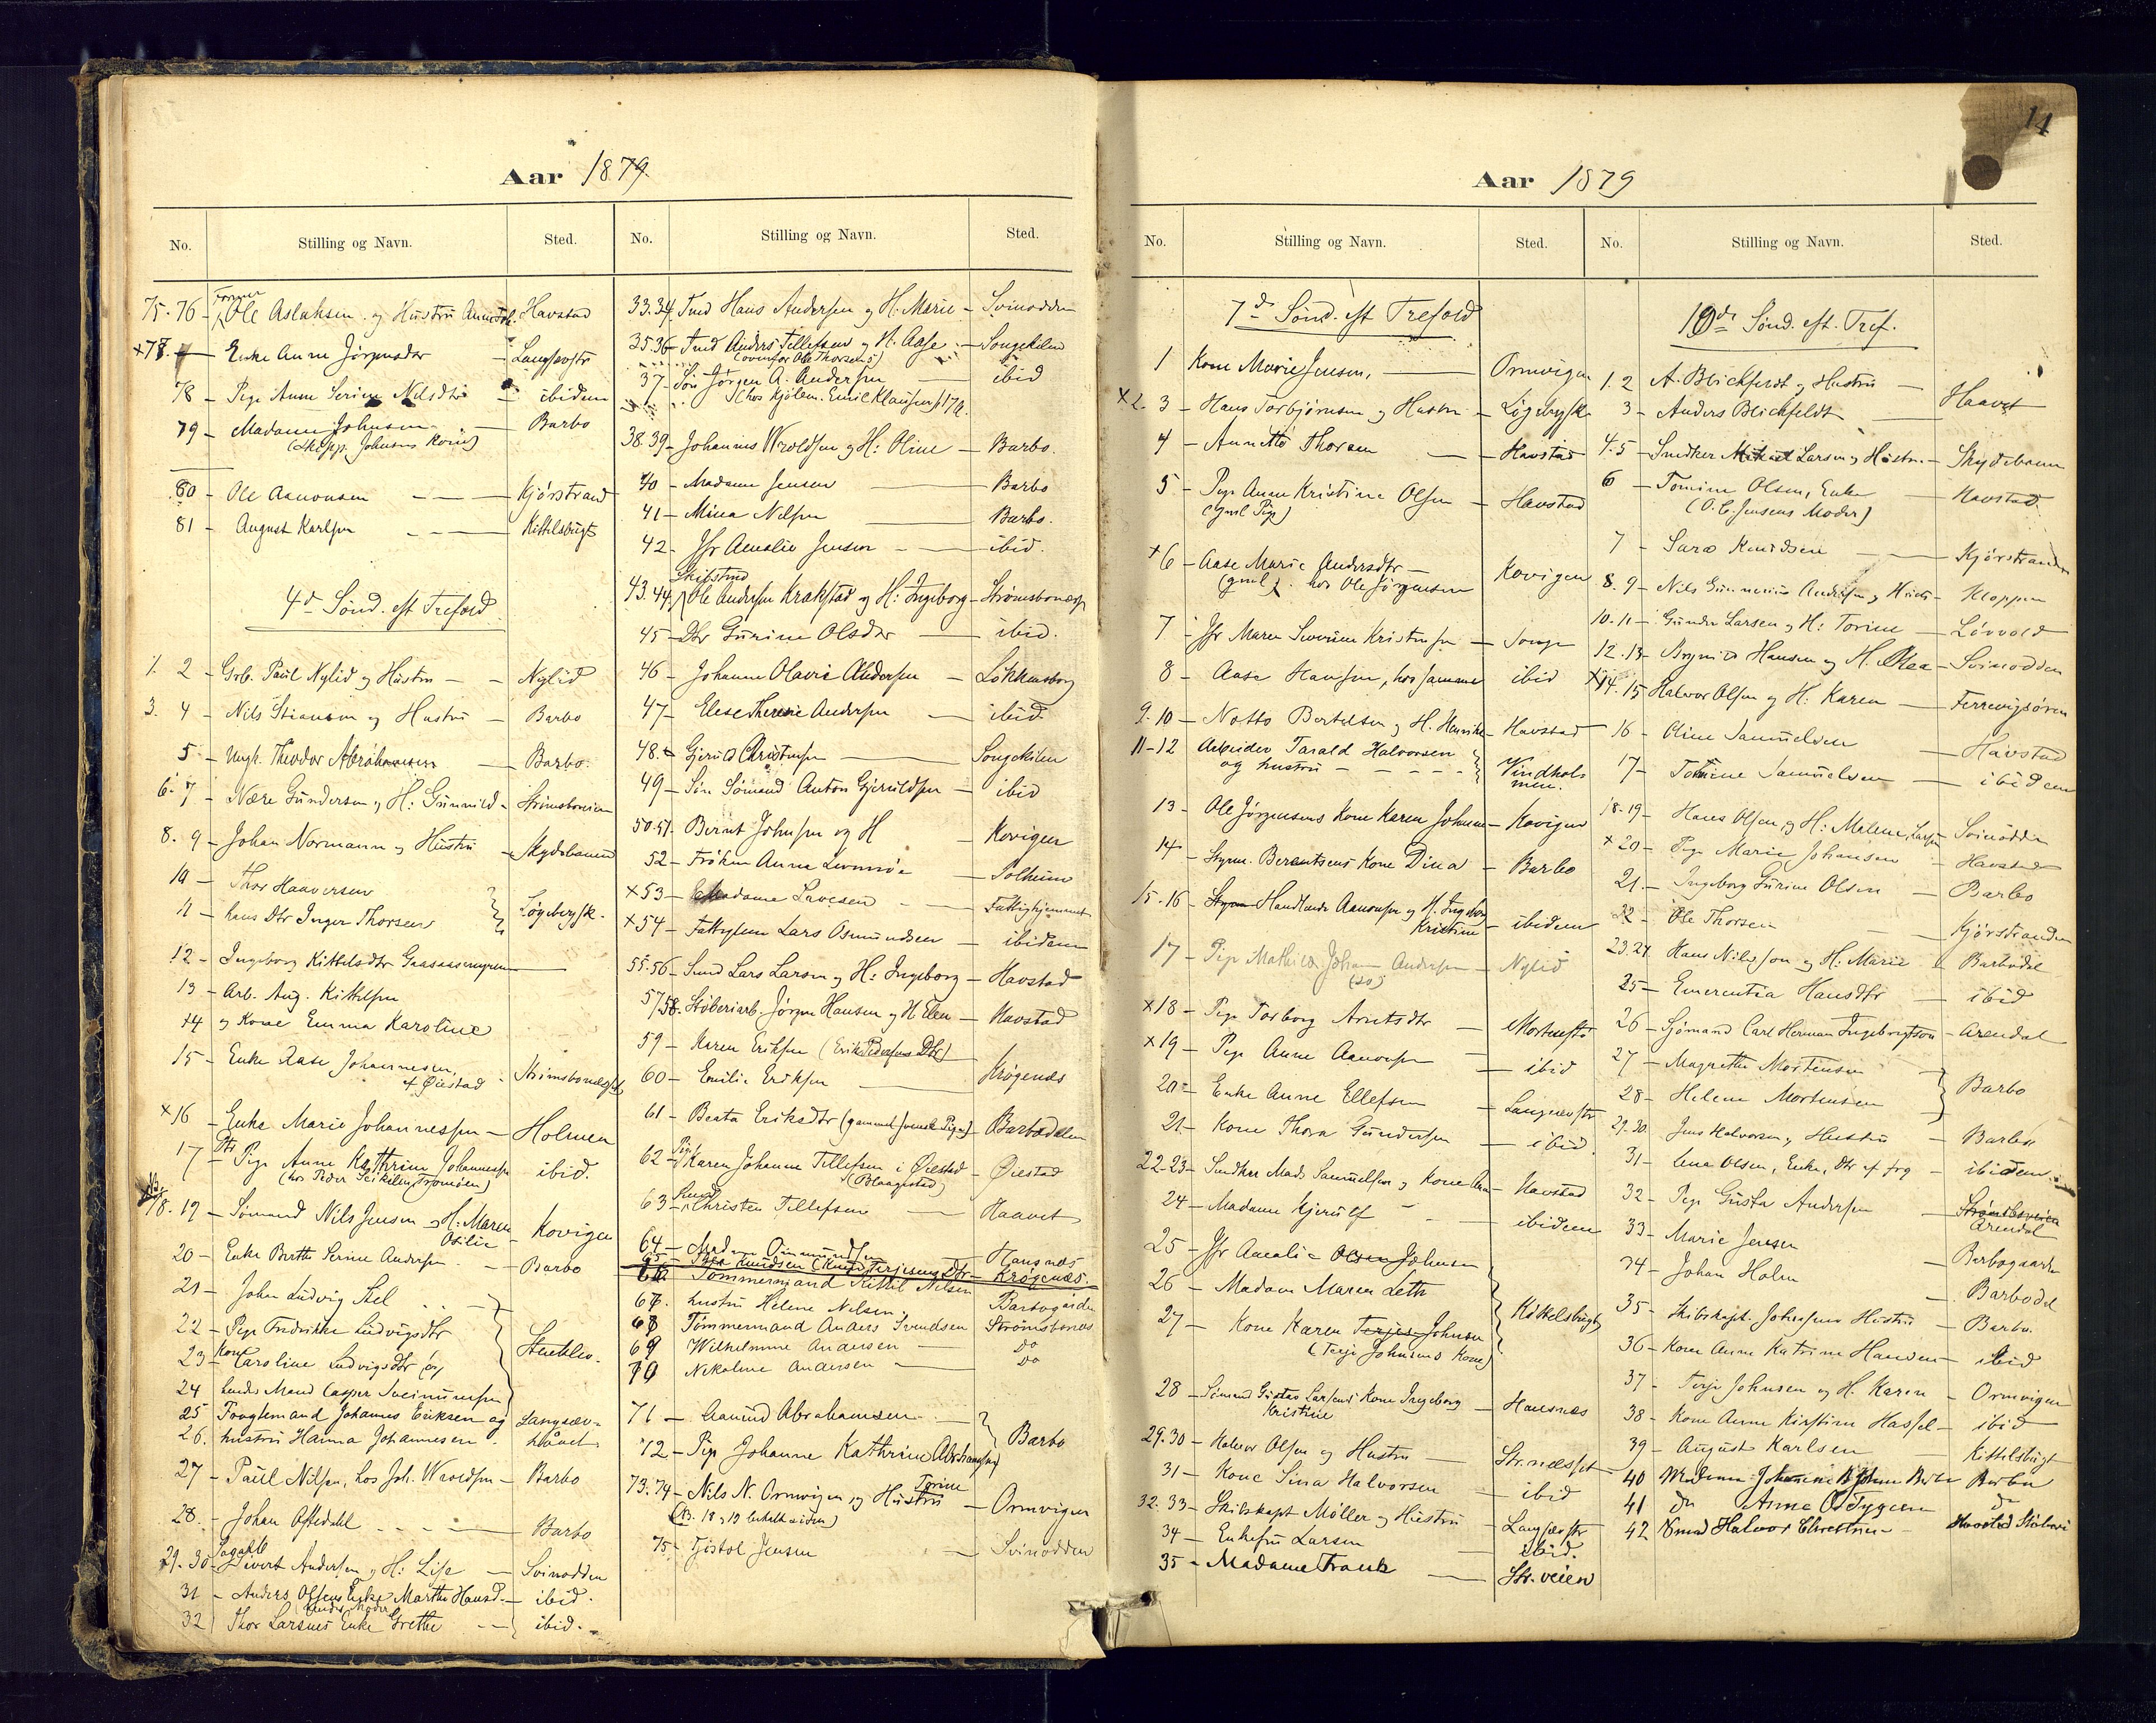 Aar 1879.
No. Stilling og Navn. Sted.
75.76 - Ole Aslaksen og Hustru Havstad
x78. - Enke Anne Jörgensdtr - Langsevstr
78 - Pige Anne Serine Nilsdtr - ibidem
79 - Madame Johnsen - Barbo
(Skipp. Johnsens Kone)
80 - Ole Aanonsen - Kjörstrand
81 - August Karlsen - Kittelsbugt
4d Sönd. eft Trefold
1. 2 - Grb. Paul Nylid og Hustru - Nylid
3. 4 - Nils Stiansen og Hustru - Barbo
5 - Ungk. Theodor Abrahamsen - Barbo.
6. 7 - Nære Gundersen og H: Gunnild - Strömsboveien
8. 9 - Johan Normann og Hustru - Skydebanen
10 - Thor Haaversen
11 - hans Dtr Inger Thorsen Lögebrysk.
12 - Ingeborg Kittelsdtr
13 - Arb. Aug. Kittelsen
14 og Kone Emma Karoline
15 - Enke Aase Johannesen,
af Öiestad - Strömsbonæsset
x16 - Enke Marie Johannesen - Holmen
17 - Pige Anne Kathrine Johannesen ibid.
(hos Peder Tromöen)
18. 19 - Sömand Nils Jensen og H: Maren Otilie - Kovigen
20 - Enke Berthe Serine Andersen - Barbo
21 - John Ludvig Stel
22 - Pige Fredrikke Ludvigsdtr
23 - Kone Caroline Ludvigsdtr og
24 hendes Mand Casper
25 Faagtemand Johannes Eriksen og Langsæv-
26. hustru Hanna Johannesen. håvet
27 - Paul Nilsen, hos Joh. Wroldsen - Barbo
28. - Johan Oftedahl - Barbo
29. 30 - Sivert Andersen og H: Lise - Svinodden
31 - Anders Olsens Enke Marthe Hansd. - ibid.
32 Thor Larsens Enke Grethe - ibid.
No. Stilling og Navn. Sted.
33.34 Smd Hans Andersen og H: Marie - Svinodden
35.36 - Smd Anders Tellefsen og H. Aase - Songekilen
(ovenfor Ole Thorsens)
37 - Sön Jörgen A. Andersen ibid
(hos Kjöbm. Emil Klausen)
38.39 - Johannes Wroldsen og H: Oline - Barbo.
40 - Madame Jensen - Barbo
41 - Mina Nilsen Barbo.
42 - Jfr Amalie Jensen - ibid.
Skibstmd
43.44 Ole Andersen Krakstad og H: Ingeborg - Strömsbonæss
45 - Dtr Gurine Olsdtr - ibid.
46 - Johanne Olavie Andersen - Lökkensborg
47 - Elese Therese Andersen - ibid.
48. - Gjeruld Christensen - Songekilen
49 - Sön Sömand Anton Gjeruldsen - ibid
50.51 - Bernt Johnsen og H - Kovigen
52 - Fröken Anna - Solheim
x53 - Madame Lavesen - Fattighjemmet
x54 - Fattiglem Lars Osmundsen - ibidem
55.56 - Smd Lars Larsen og H: Ingeborg - Havstad
57.58. Stöberiarb. Jörgen Hansen og H Ellen - Havstad
59 - Karen Eriksen (Erik Pedersens Dtr)
60 - Emilie Eriksen Krögenæs
61 - Beata Eriksdtr (gammel svensk Pige) - Barbodalen
62 - Pige Karen Johanne Tellefsen i Öiestad - Öiestad
(Blaagestad)
63 - Smd Christen Tellefsen - Haavet
64 - Madam Hansnæs
65 - Knudsen (Knud Terjesens Dtr - Krögenæs.
66 Tömmermand Kittil Nilsen
67. hustru Helene Nilsen. Barbogården
68 Tömmermand Anders Svendsen Strömsbonæs
69 Wilhelmine Andersen - Do
70 Nikoline Andersen - Do
71 - Aanund Abrahamsen
72 - Pige Johanne Kathrine Abrahamsen Barbo
73.74 - Nils N. Ormvigen og Hustru Torine - Ormvigen
75 - Tjöstol Jensen - Svinodden
14
Aar 1879
No. Stilling og Navn. Sted.
7de Sönd. eft Trefold
1 Kone Marie Jensen, Ormvigen
x2. 3 - Hans Torbjörnsen og Hustru - Lögebrysk.
4 - Annette Thorsen - Havstad
5 - Pige Anne Kristine Olsen - Havstad
(gml Pige)
x6 - Aase Marie Andersdtr -
(gml P. hos Ole Jörgensen Kovigen
7 - Jfr Maren Severine Kristensen - Songe
8 - Aase Hansen, hos samme ibid
9.10 - Notto Bertelsen og H. Henrike - Havstad
11-12 Arbeider Tarald Halvorsen
og hustru - Vindhol-
men.
13 - Ole Jörgensens Kone Karen Johnsen - Kovigen
14 - Styrm. Berentsens Kone Dina - Barbo
15.16 - Styrm Handlende Aanonsen og H. Ingeborg
Kristine - ibidem
17 - Pige Mathilde Johanne Andersen - Nylid
(20)
x18 - Pige Torborg Arntsdtr
x19 - Pige Anne Aanonsen - ibid
20 - Enke Anne Ellefsen - Langsævstr
21 - Kone Thora Gundersen - ibid.
22-23 - Snedker Mads Samuelsen og Kone - Havstad
24 - Madame Kjerulf - ibidem
25 - Jfr Amalie Olsen Johnsen
26 - Madam Maren Leth
27 - Kone Karen Terjes Johnsen Kittelsbugt
(Terje Johnsens Kone)
28 - Sömand Gustav Larsens Kone Ingeborg
Kristine - Hansnæs
29.30 - Halvor Olsen og Hustru - Str.næsset
31 - Kone Sina Halvorsen - ibid
32.33 - Skibskapt Möller og Hustru - Langsævstr
34 - Enkefru Larsen - ibid.
35 - Madame Frank Str. veien
No. Stilling og Navn. Sted.
10de Sönd. eft. Tref.
1.2 - A. Blichfeldt og Hustru
3 - Anders Blichfeldt Haavet
4.5 - Snedker Mikael Larsen og Hustru - Skydebanen
6 - Tomine Olsen, Enke Havstad
(O. C. Jensens Moder)
7 - Sara Knudsen - Kjörstranden
8.9 - Nils Gunnerius Andersen og Hustr - Kloppen
10.11 - Gunder Larsen og H: Torine - Lövvold
12.13 - Brynild Hansen og H. Olea - Svinodden
x14.15 Halvor Olsen og H. Karen - Færevigsören
16 - Oline Samuelsen - Havstad
17 - Tomine Samuelsen - ibidem
18.19 - Hans Olsen og H: Malene, - Svinodden
x20 - Pige Marie Johansen - Havstad
21. - Ingeborg Gurine Olsen - Barbo
22 - Ole Thorsen - Kjörstranden
23.24 Hans Nilsson og H: Marie Barbodal
25 - Emerentia Hansdtr - ibid
26 - Sjömand Carl Herman Ingebrigtson - Arendal
27 - Magrethe Mortensen
28 - Helene Mortensen Barbo
29.30 Jens Halvorsen og Hustru - Barbo
31 - Lena Olsen, Enke, Dtr af forg - ibidem.
32 - Pige Gusta Andersen - Strömsboveien
Arendal
33 - Marie Jensen
34 - Johan Holm - Barbogaarden
- Barbodal
35 - Skibskapt. Johnsens Hustru - Barbo.
36 - Kone Anne Katrine Hansen - ibid
37 - Terje Johnsen og H. Karen - Ormvigen
38 - Kone Anne Kirstine Hassel - ibid
39 - August Karlsen Kittelsbugt
40 Madame Johanne Barbo
41 do Anne O. Tygesen do
42 Smd Halvor Christensen - Havstad